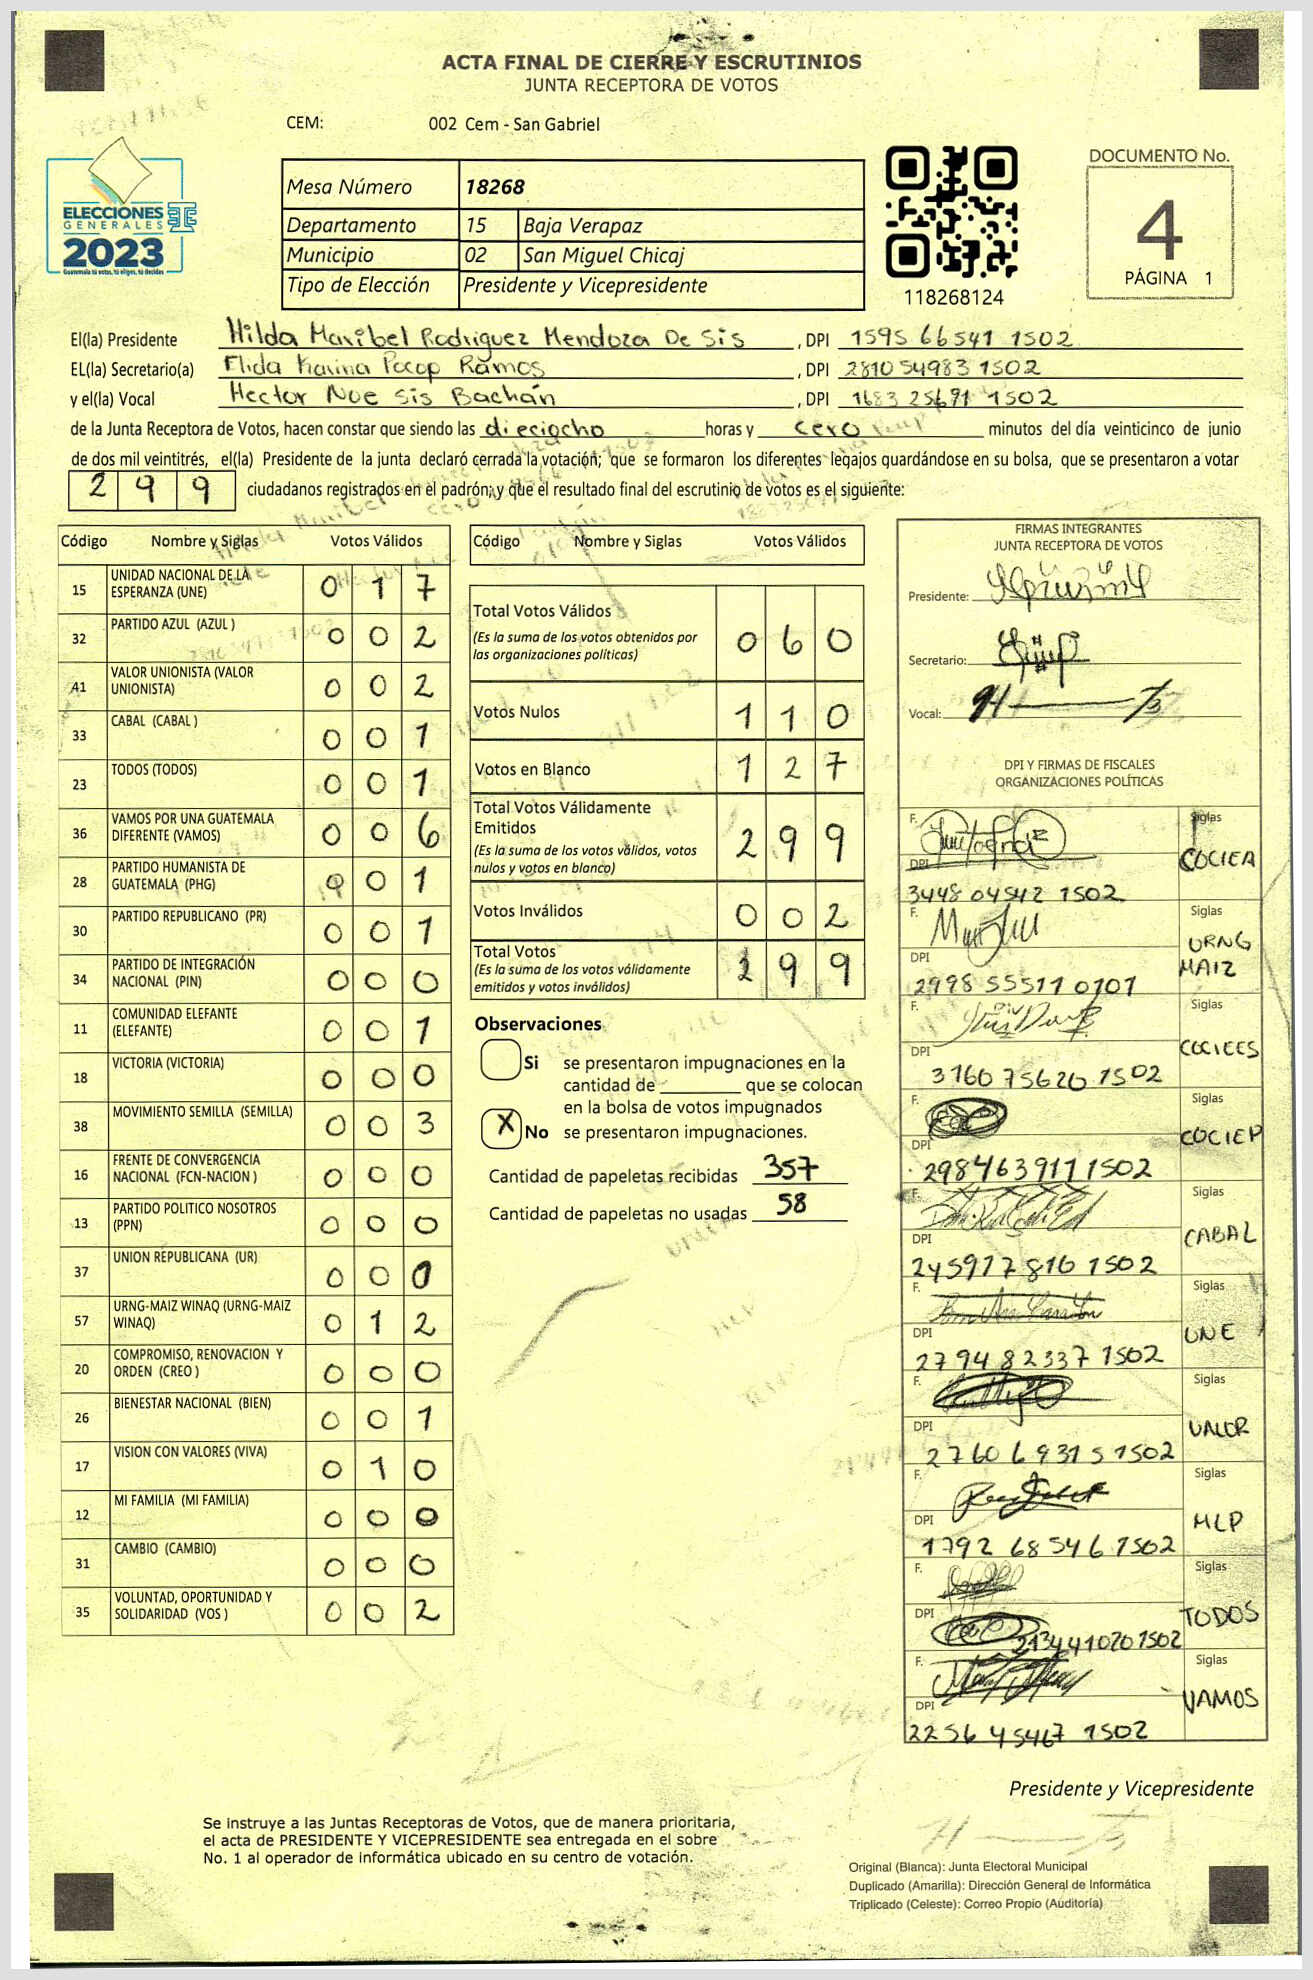 ACTA FINAL DE CIERRE Y ESCRUTINIOS
JUNTA RECEPTORA DE VOTOS
CEM: 002 Cem - San Gabriel
ELECCIONES
GENERALES
2023
Guatemala tú votas, tú eliges, tú decides
Mesa Número 18268
Departamento 15 Baja Verapaz
Municipio 02 San Miguel Chicaj
Tipo de Elección Presidente y Vicepresidente
118268124
DOCUMENTO No.
4
PÁGINA 1
El(la) Presidente Hilda Maribel Rodriguez Mendoza De Sis, DPI 1595 66541 1502
EL(la) Secretario(a) Elida Karina Pocop Ramos, DPI 2810 54983 1502
y el(la) Vocal Hector Noe Sis Bachán, DPI 1683 25691 1502
de la Junta Receptora de Votos, hacen constar que siendo las dieciocho horas y cero minutos del día veinticinco de junio
de dos mil veintitrés, el(la) Presidente de la junta declaró cerrada la votación; que se formaron los diferentes legajos guardándose en su bolsa, que se presentaron a votar
299 ciudadanos registrados en el padrón; y que el resultado final del escrutinio de votos es el siguiente:
Código Nombre y Siglas Votos Válidos
15 UNIDAD NACIONAL DE LA ESPERANZA (UNE) 0 1 7
32 PARTIDO AZUL (AZUL ) 0 0 2
41 VALOR UNIONISTA (VALOR UNIONISTA) 0 0 2
33 CABAL (CABAL ) 0 0 1
23 TODOS (TODOS) 0 0 1
36 VAMOS POR UNA GUATEMALA DIFERENTE (VAMOS) 0 0 6
28 PARTIDO HUMANISTA DE GUATEMALA (PHG) 0 0 1
30 PARTIDO REPUBLICANO (PR) 0 0 1
34 PARTIDO DE INTEGRACIÓN NACIONAL (PIN) 0 0 0
11 COMUNIDAD ELEFANTE (ELEFANTE) 0 0 1
18 VICTORIA (VICTORIA) 0 0 0
38 MOVIMIENTO SEMILLA (SEMILLA) 0 0 3
16 FRENTE DE CONVERGENCIA NACIONAL (FCN-NACION ) 0 0 0
13 PARTIDO POLITICO NOSOTROS (PPN) 0 0 0
37 UNION REPUBLICANA (UR) 0 0 0
57 URNG-MAIZ WINAQ (URNG-MAIZ WINAQ) 0 1 2
20 COMPROMISO, RENOVACION Y ORDEN (CREO ) 0 0 0
26 BIENESTAR NACIONAL (BIEN) 0 0 1
17 VISION CON VALORES (VIVA) 0 1 0
12 MI FAMILIA (MI FAMILIA) 0 0 0
31 CAMBIO (CAMBIO) 0 0 0
35 VOLUNTAD, OPORTUNIDAD Y SOLIDARIDAD (VOS ) 0 0 2
Código Nombre y Siglas Votos Válidos
Total Votos Válidos 0 6 0
(Es la suma de los votos obtenidos por
las organizaciones políticas)
Votos Nulos 1 1 0
Votos en Blanco 1 2 7
Total Votos Válidamente
Emitidos 2 9 9
(Es la suma de los votos válidos, votos
nulos y votos en blanco)
Votos Inválidos 0 0 2
Total Votos 2 9 9
(Es la suma de los votos válidamente
emitidos y votos inválidos)
Observaciones
Si se presentaron impugnaciones en la
cantidad de ________ que se colocan
en la bolsa de votos impugnados
X No se presentaron impugnaciones.
Cantidad de papeletas recibidas 357
Cantidad de papeletas no usadas 58
FIRMAS INTEGRANTES
JUNTA RECEPTORA DE VOTOS
Presidente:
Secretario:
Vocal:
DPI Y FIRMAS DE FISCALES
ORGANIZACIONES POLÍTICAS
F. Siglas
DPI COCIEA
3448 04542 1502
F. Siglas
DPI URNG MAIZ
2998 55511 0101
F. Siglas
DPI COCIEES
3160 75620 1502
F. Siglas
DPI COCIEP
2984639111502
F. Siglas
DPI CABAL
245917 816 1502
F. Siglas
DPI UNE
2794 82337 1502
F. Siglas
DPI VALOR
2760 69315 1502
F. Siglas
DPI MLP
1792 68546 1502
F. Siglas
DPI TODOS
2134410201502
F. Siglas
DPI VAMOS
2256 45467 1502
Presidente y Vicepresidente
Se instruye a las Juntas Receptoras de Votos, que de manera prioritaria,
el acta de PRESIDENTE Y VICEPRESIDENTE sea entregada en el sobre
No. 1 al operador de informática ubicado en su centro de votación.
Original (Blanca): Junta Electoral Municipal
Duplicado (Amarilla): Dirección General de Informática
Triplicado (Celeste): Correo Propio (Auditoría)